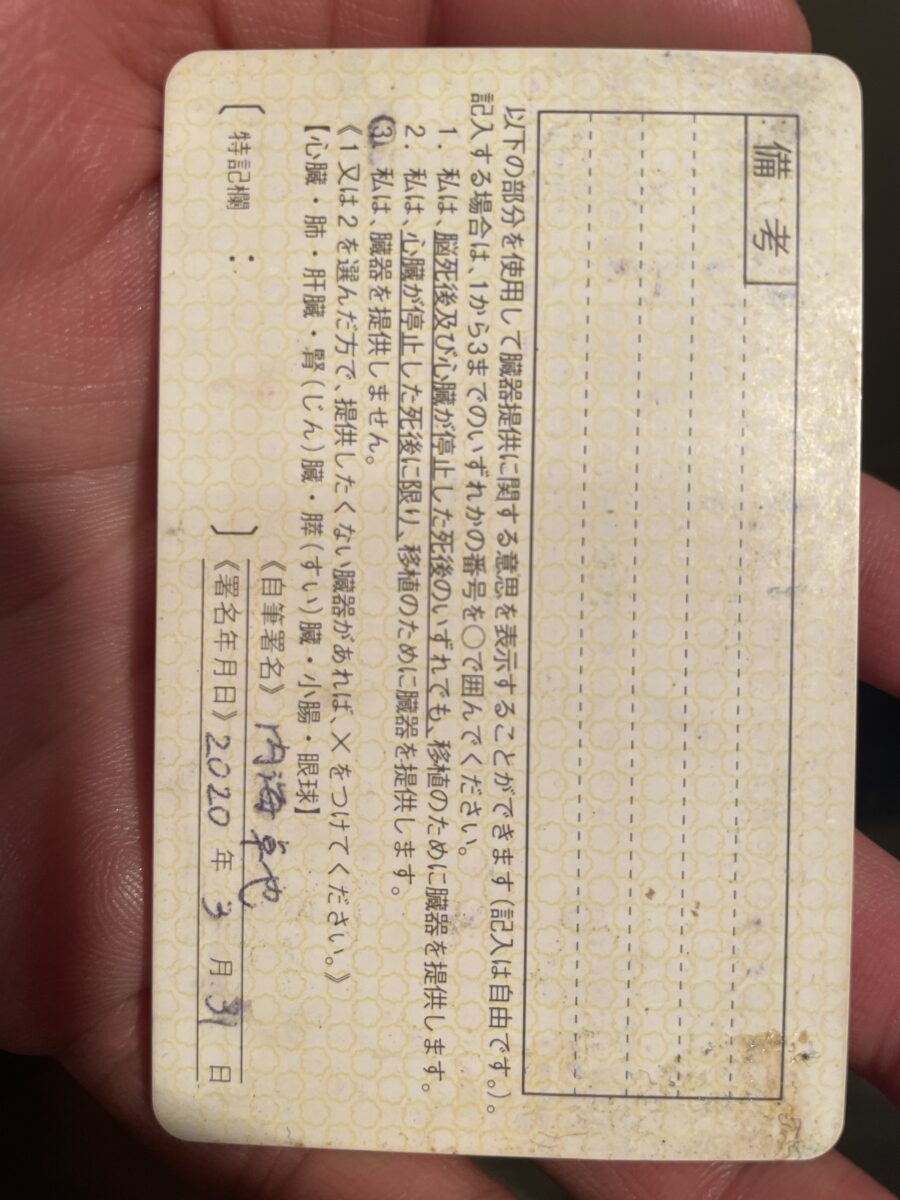 備考
以下の部分を使用して臓器提供に関する意思を表示することができます(記入は自由です。)。
記入する場合は、1から3までのいずれかの番号を〇で囲んでください。
1. 私は、脳死後及び心臓が停止した死後のいずれでも、移植のために臓器を提供します。
2. 私は、心臓が停止した死後に限り、移植のために臓器を提供します。
3. 私は、臓器を提供しません。
《1又は2を選んだ方で、提供したくない臓器があれば、×をつけてください。》
【心臓・肺・肝臓・腎(じん)臓・膵(すい)臓・小腸・眼球】
〔特記欄:　　　〕
《自筆署名》内海卓也
《署名年月日》2020年3月31日